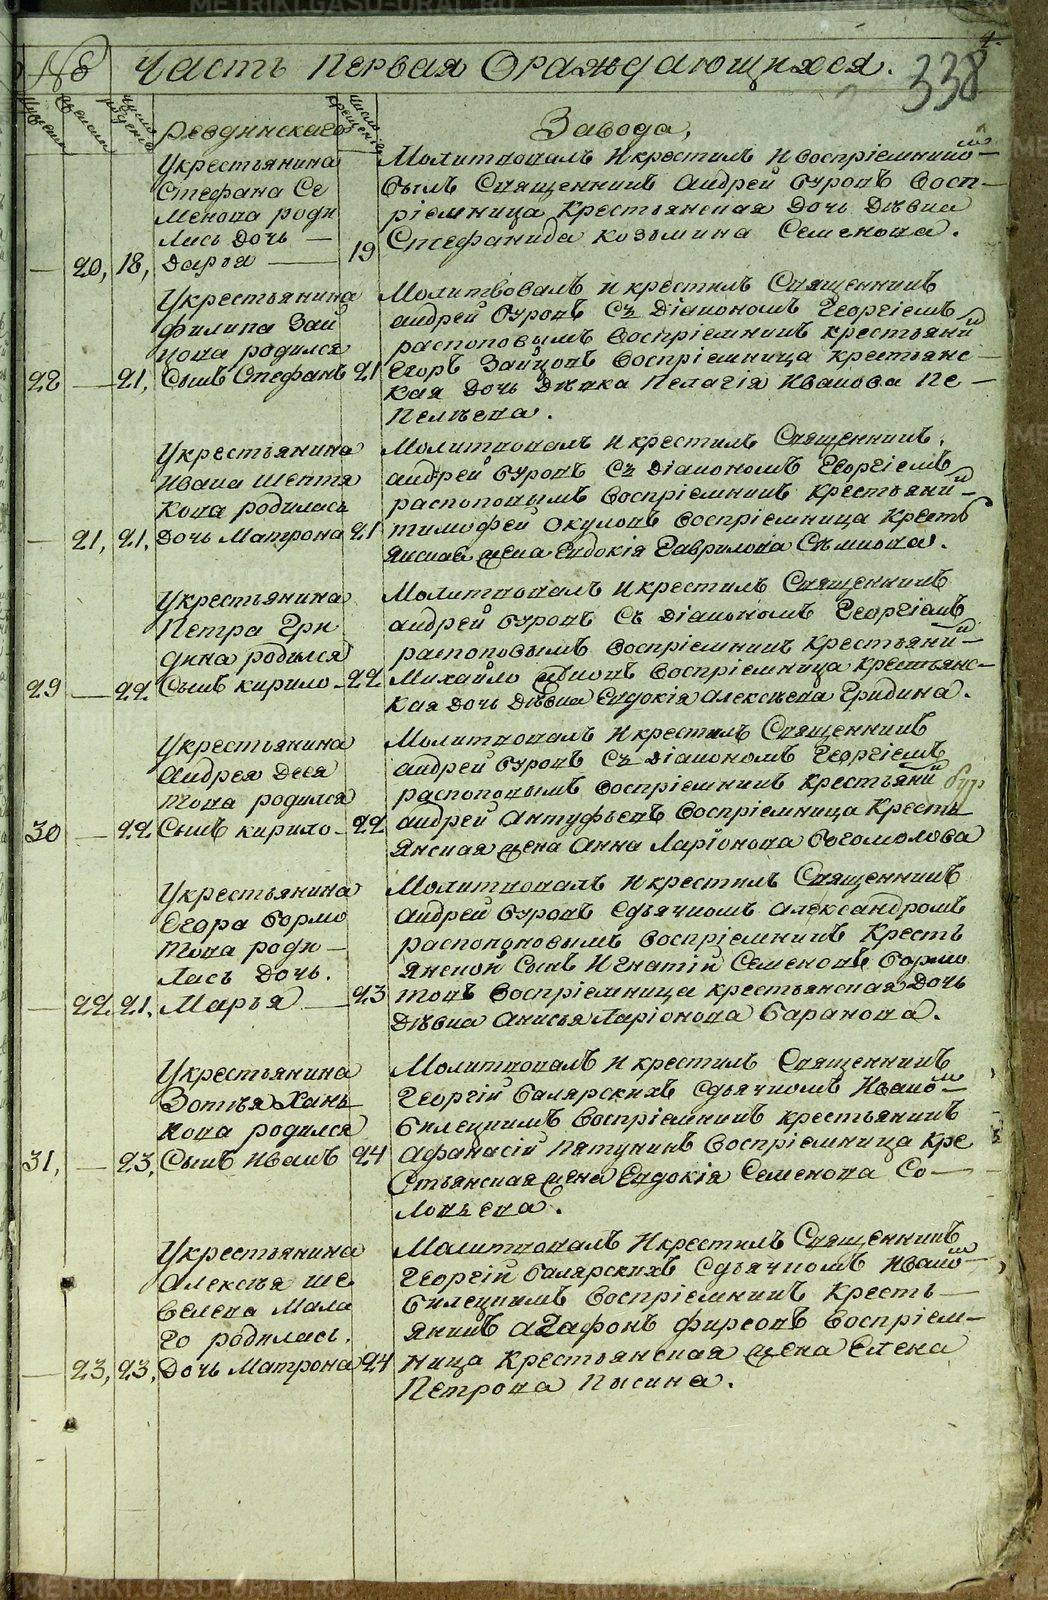 METRIKI.GASU-URAL.RU METRIKI.GASU-URAL.RU
4.
№ Часть Первая Ораждающихся. 338
Ревдинскаго Завода,
Укрестьянина
Стефана Се
менова роди
лась дочь —
— 20, 18, Дарья — 19
Молитвовалъ и крестилъ и воспріемником
былъ Священникъ Андрей Буровъ Восп—
ріемница крестьянская дочь дѣвка
Стефанида козьмина Семенова.
Укрестьянина
филипа Зай
цова родился
28 — 21, Сынъ Стефанъ 21
Молитвовалъ и крестилъ Священникъ
андрей Буровъ Съ Діакономъ Георгіемъ
распоповымъ Воспріемникъ крестьянин
Егоръ Зайцовъ Воспріемница крестьянс—
кая дочь дѣвка Пелагія Иванова Пе—
пелѣева.
Укрестьянина
Ивана Шептя
кова родилась
— 21, 21, Дочь Матрона 21
Молитвовалъ и крестилъ Священникъ.
андрей Буровъ Съ Діакономъ Георгіемъ
распоповымъ Воспріемникъ крестьянин
тимофей окуловъ Воспріемница Кресть
янская жена Евдокія Гаврилова
Укрестьянина
Петра Гри
дина родился
29 — 22 Сынъ кирило — 22
Молитвовалъ и крестилъ Священникъ
андрей Буровъ Съ Діакономъ Георгіемъ
распоповымъ Воспріемникъ Крестьянин
Михайло Воспріемница крестьянс—
кая дочь дѣвка Евдокія алексѣева Гридина.
Укрестьянина
Андрея Деся
това родился
30 — 22 Сынъ кирило — 22
Молитвовалъ и крестилъ Священникъ
андрей Буровъ Съ Діакономъ Георгіемъ
распоповымъ Воспріемникъ Крестьянин
андрей Антуфьевъ Воспріемница Кресть
янская жена Анна Ларіонова Богомолова
Укрестьянина
Егора Бормо
това роди—
лась Дочь.
— 22, 21, Марья — 23
Молитвовалъ и крестилъ Священникъ
андрей Буровъ Сдьячкомъ александромъ
распопоновымъ Воспріемникъ Кресть
янской Сынъ Игнатій Семеновъ Бормо
товъ Воспріемница крестьянская дочь
дѣвка анисья Ларіонова Баранова.
Укрестьянина
Зотѣя Хань
кова родился
31, — 23, Сынъ Иванъ 24
Молитвовалъ и крестилъ Священникъ
Георгій Балярскихъ Сдьячкомъ Иваном
Билецкимъ Воспріемникъ крестьянинъ
афанасій Пятунинъ Воспріемница Кре
стьянская жена Евдокія Семенова Со—
ловьева.
Укрестьянина
Алексѣя Ше
велева Мала
го родилась.
— 23, 23, Дочь Матрона 24
Молитвовалъ и крестилъ Священникъ
Георгій Балярскихъ Сдьячкомъ Иваном
Билецкимъ Воспріемникъ Кресть—
янинъ агафонъ фирсовъ Воспріем—
ница Крестьянская жена Елена
Петрова Пысина.
METRIKI.GASU-URAL.RU METRIKI.GASU-URAL.RU